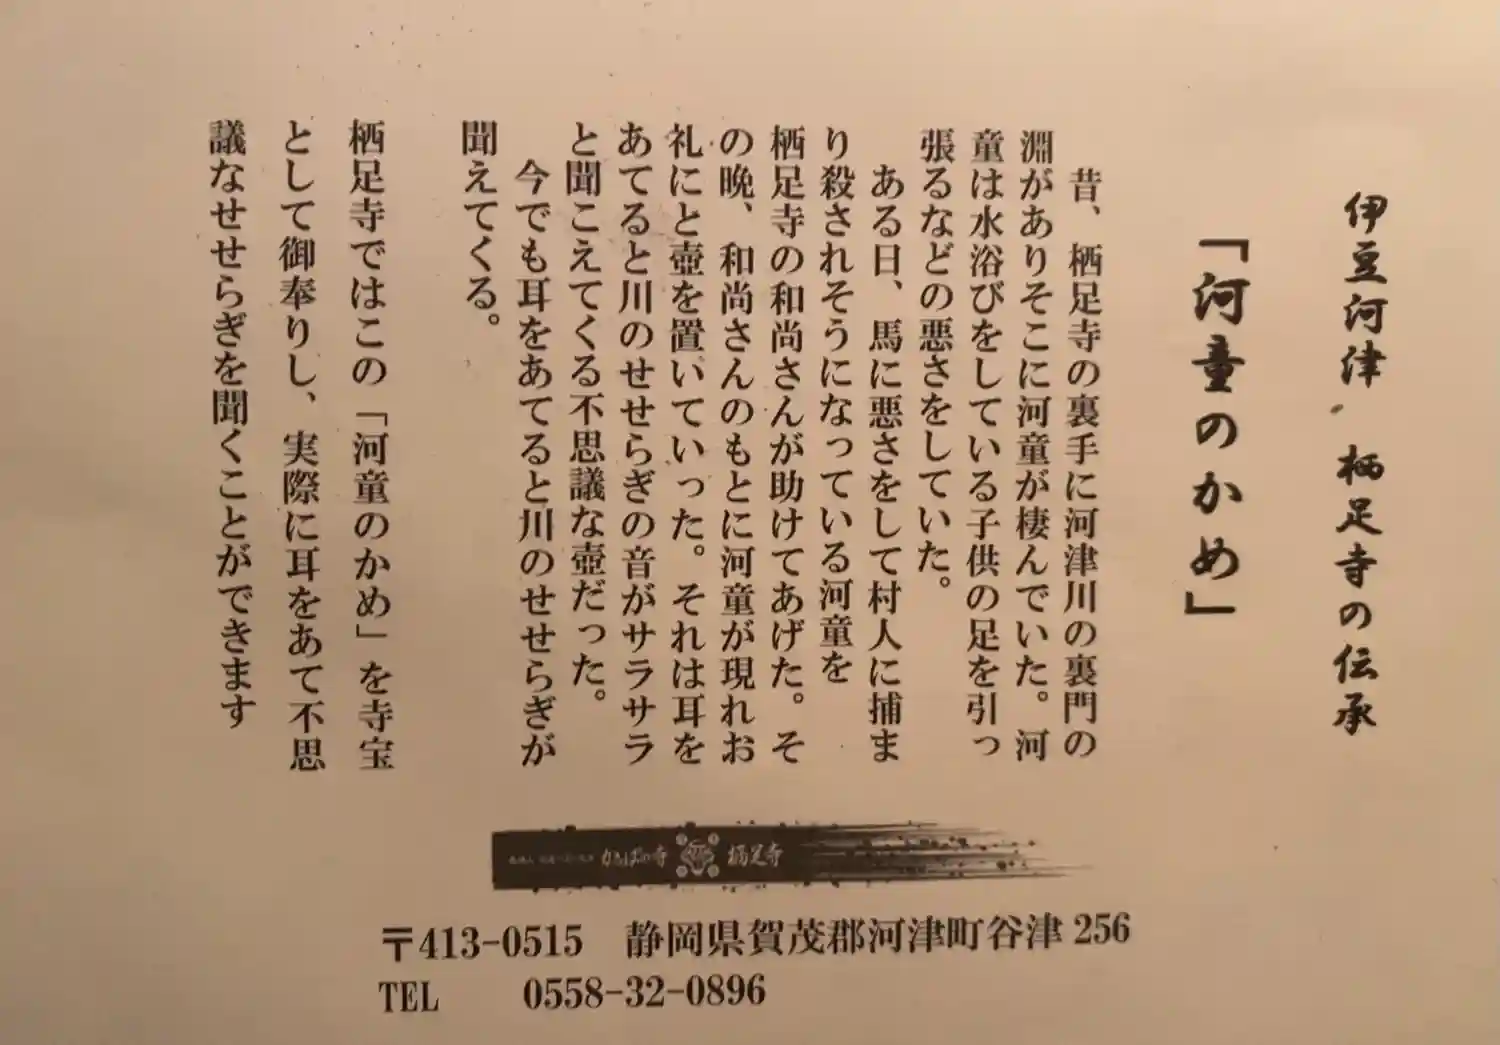 伊豆河津 栖足寺の伝承
「河童のかめ」
昔、栖足寺の裏手に河津川の裏門の
淵がありそこに河童が棲んでいた。河
童は水浴びをしている子供の足を引っ
張るなどの悪さをしていた。
ある日、馬に悪さをして村人に捕ま
り殺されそうになっている河童を
栖足寺の和尚さんが助けてあげた。そ
の晩、和尚さんのもとに河童が現れお
礼にと壺を置いていった。それは耳を
あてると川のせせらぎの音がサラサラ
と聞こえてくる不思議な壺だった。
今でも耳をあてると川のせせらぎが
聞えてくる。
栖足寺ではこの「河童のかめ」を寺宝
として御奉りし、実際に耳をあて不思
議なせせらぎを聞くことができます
かっぱの寺 栖足寺
〒413-0515 静岡県賀茂郡河津町谷津 256
TEL 0558-32-0896